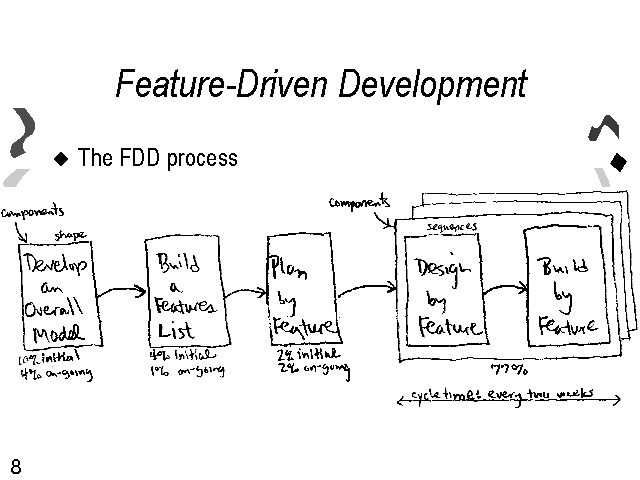 Feature-Driven Development
The FDD process
components
shape
Develop
an
Overall
Model
10% initial
4% on-going
Build
a
Features
List
4% initial
1% on-going
Plan
by
Feature
2% initial
2% on-going
components
sequences
Design
by
Feature
Build
by
Feature
77%
cycle time: every two weeks
8